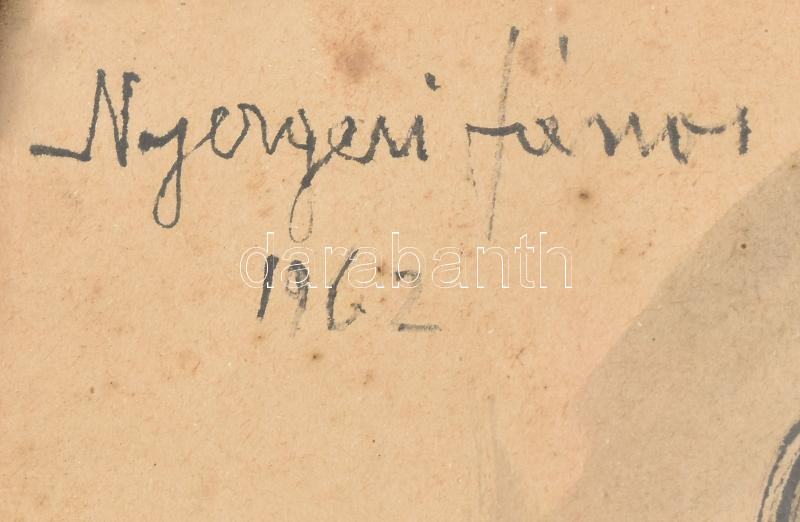 Nyergesi János
1962
darabanth